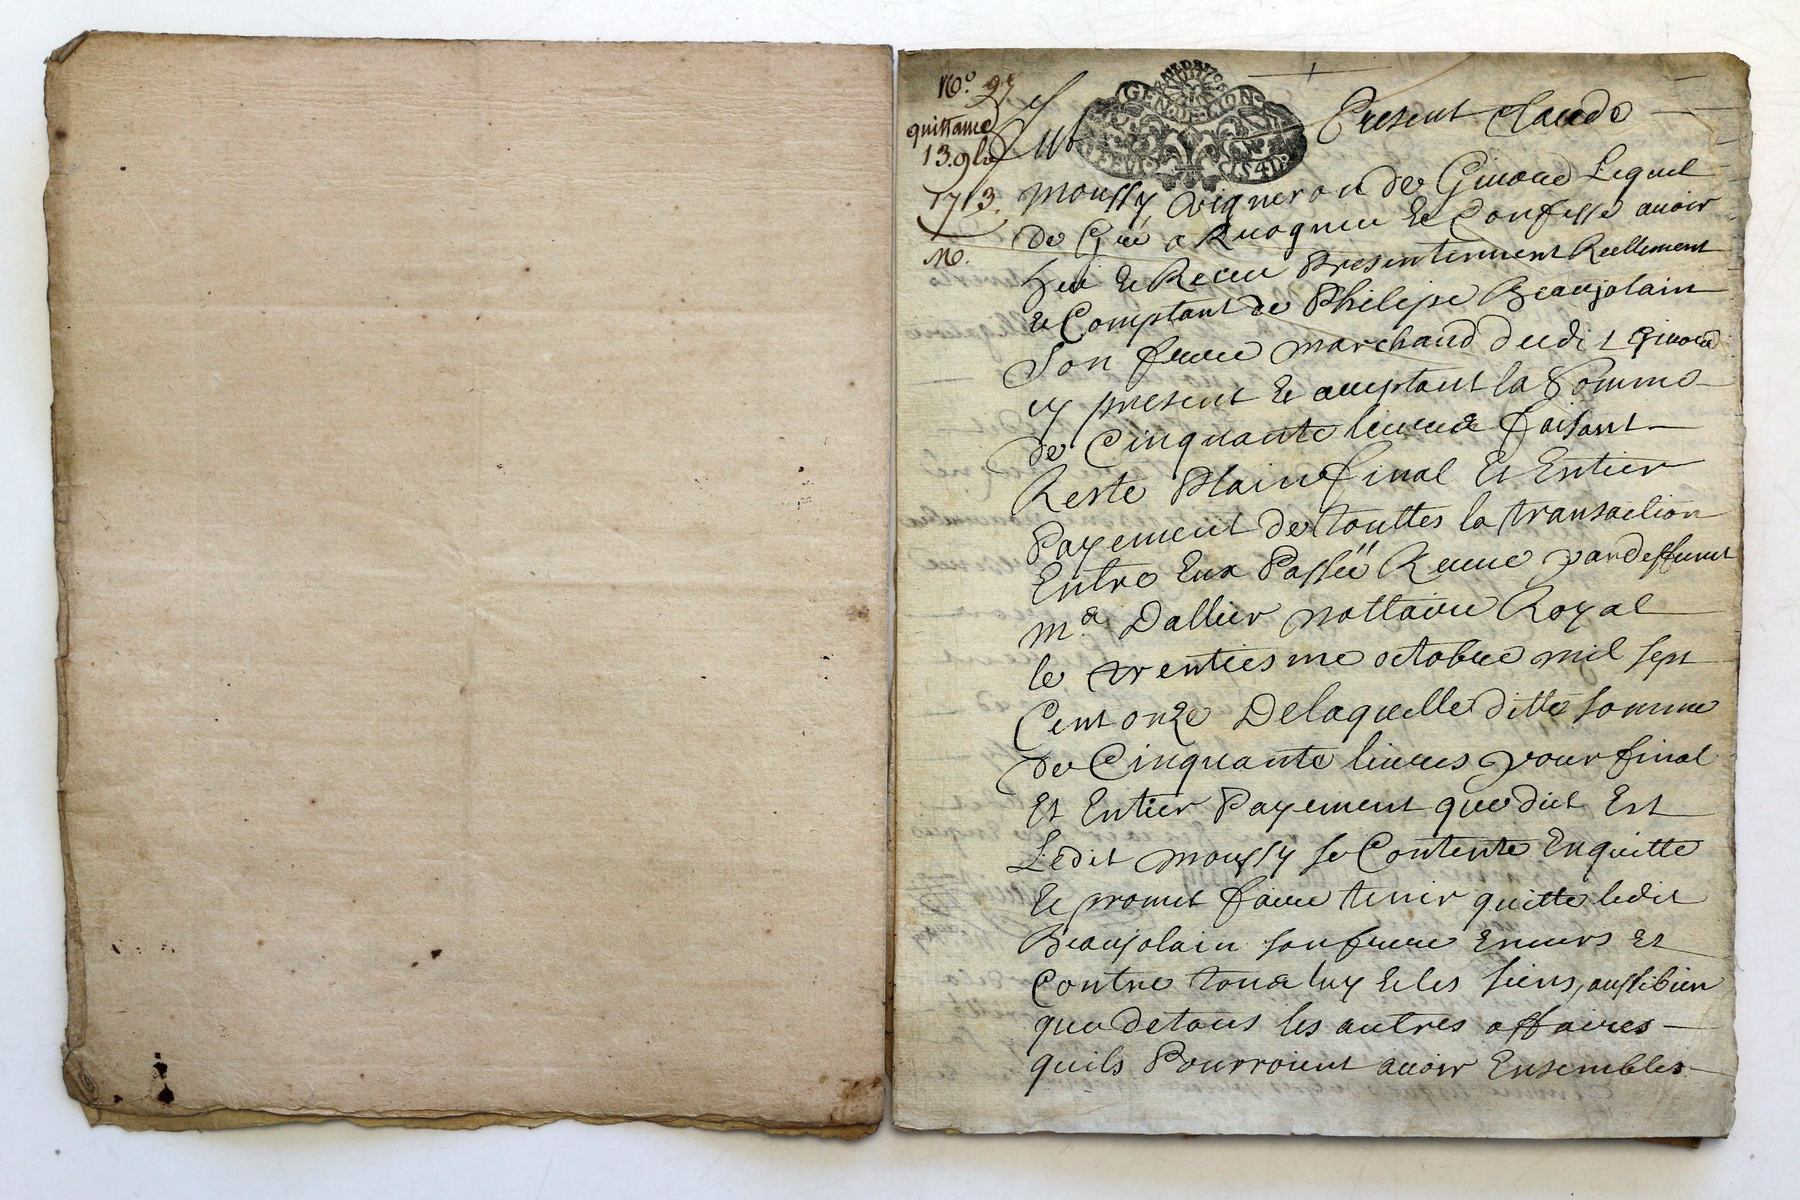 No. 97
quittance
13. 9bre
1713.
No.
GEN. DE LYON
Fut Present Claude
moussy vigneron de Givord Lequel
de Gré a Recogneu Et Confesse avoir
heu Et Receu Presentement Reellement
et Comptant de Philipe Beaujolain
Son frere marchand dudit Givord
cy present Et acceptant la Somme
de Cinquante livres faisant
Reste Plain final Et Entier
Payement de touttes la transaction
Entre Eux Passéé Receue par deffunct
me Dallier nottaire Royal
le trentiesme octobre mil sept
Cent onze Delaquelle ditte somme
de Cinquante livres pour final
Et Entier Payement que dict Est
Ledit moussy se Contente Enquitte
Et promet faire tenir quitte ledit
Beaujolain son frere Envers Et
Contre tous luy Et les siens, aussi bien
que de tous les autres affaires
quils Pourroient avoir Ensembles